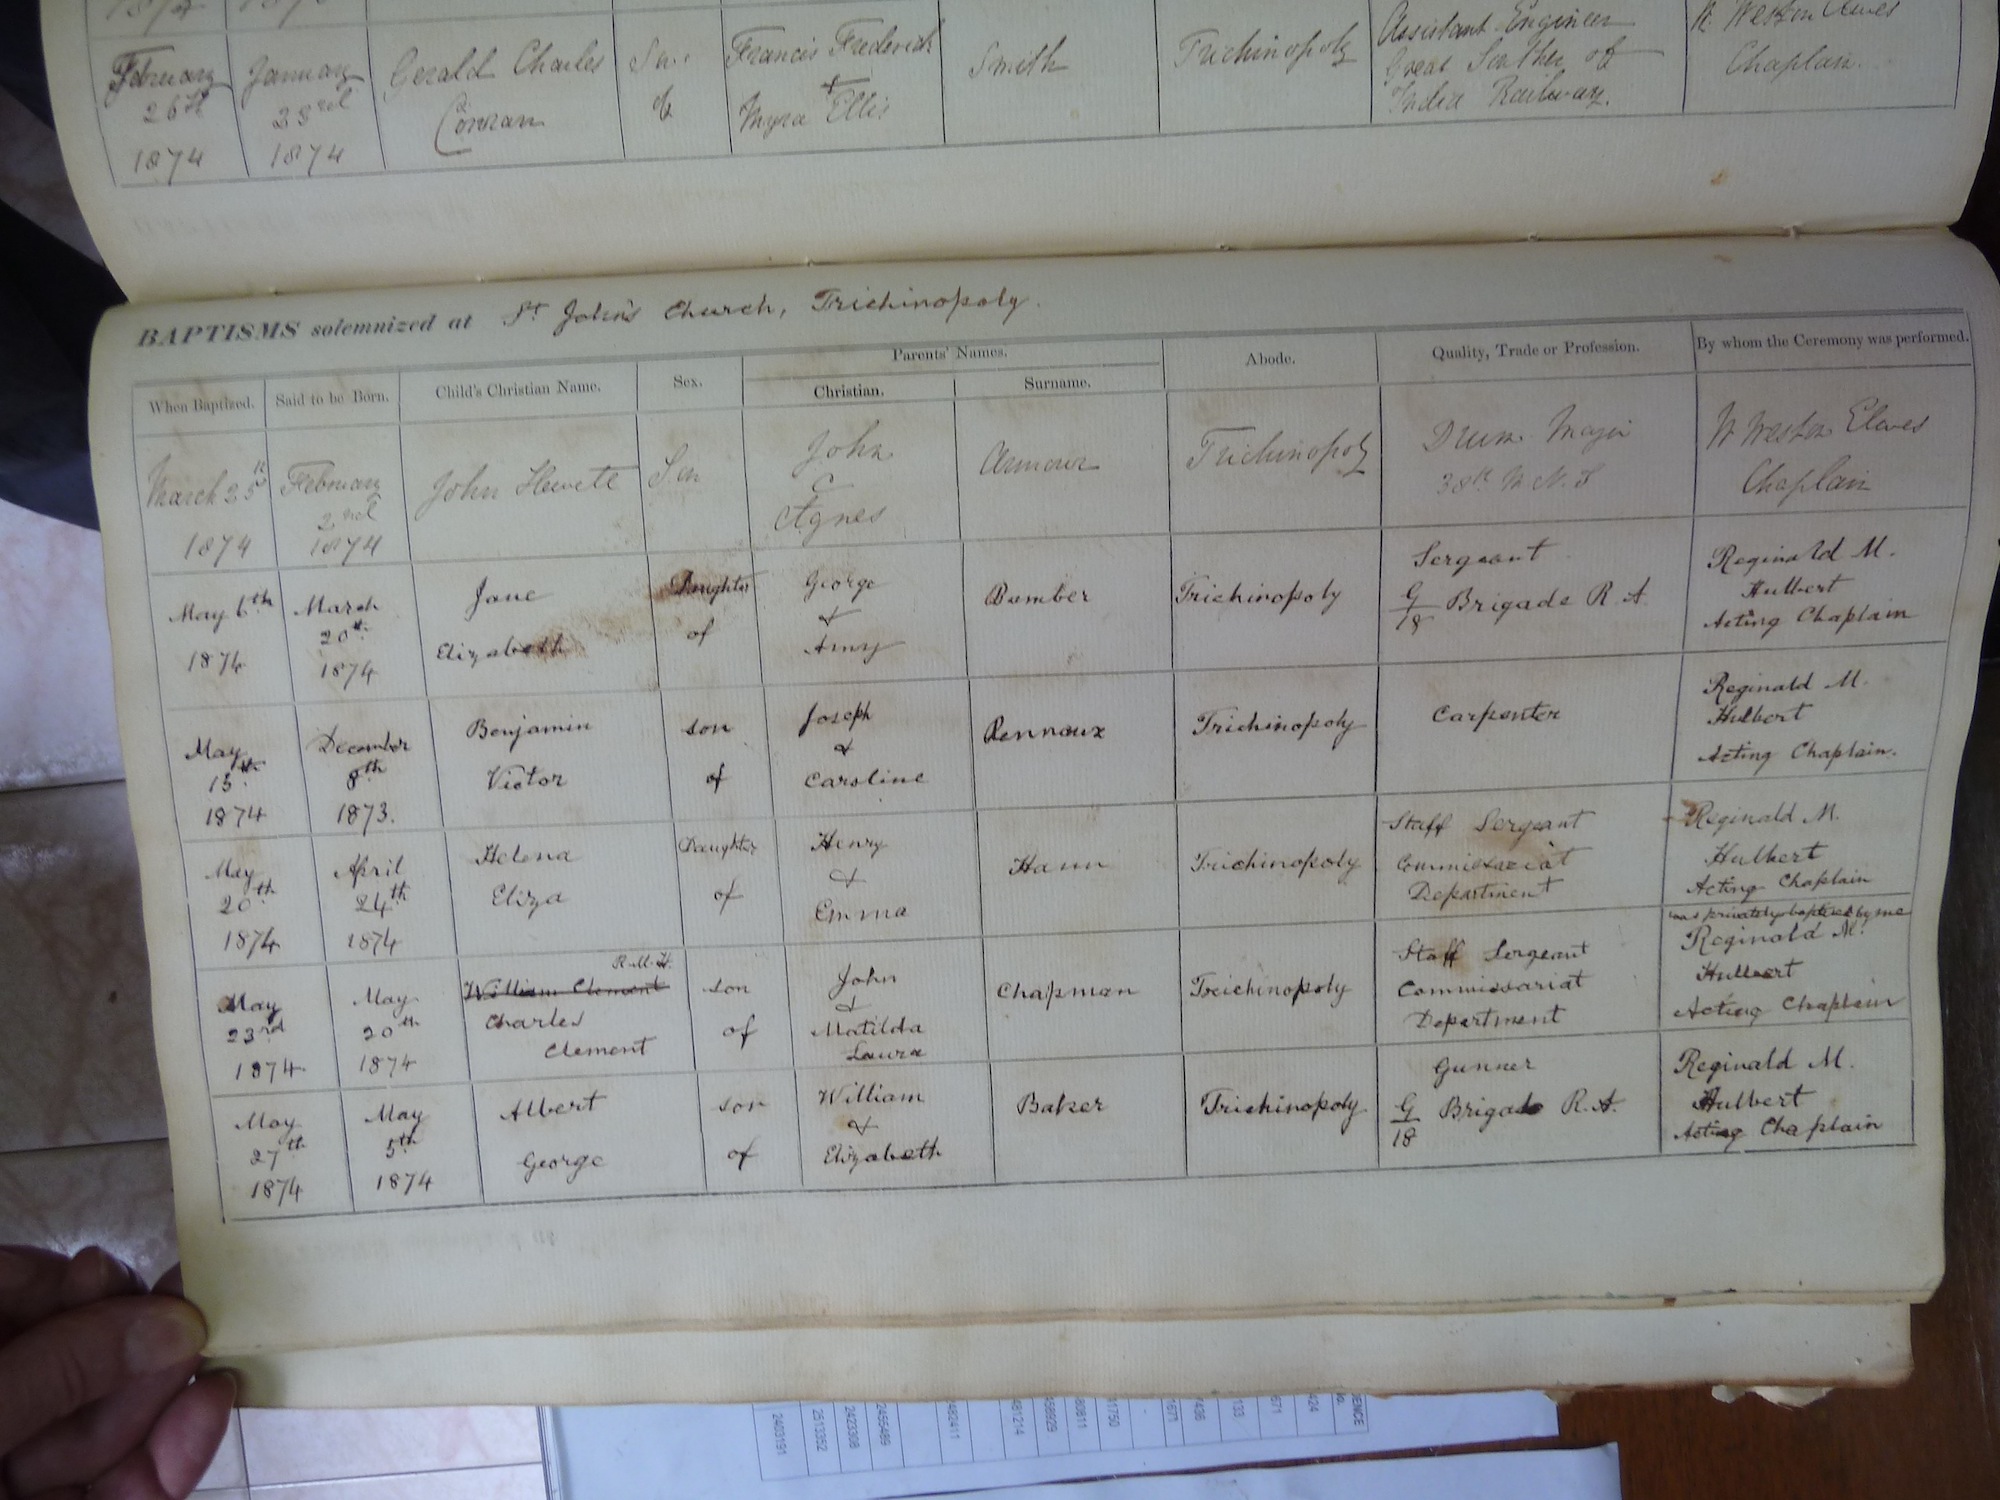 February
26th
1874
January
23rd
1874
Gerald Charles
Conran
Son
of
Francis Frederick
+
Myra Ellis
Smith
Trichinopoly
Assistant Engineer
Great Southern of
India Railway.
W Weston Elwes
Chaplain.
BAPTISMS solemnized at St John's Church, Trichinopoly.
When Baptized.
Said to be Born.
Child's Christian Name.
Sex.
Parents' Names.
Christian.
Surname.
Abode.
Quality, Trade or Profession.
By whom the Ceremony was performed.
March 25th
1874
February
2nd
1874
John Hewett
Son
John
&
Agnes
Armour
Trichinopoly
Drum Major
38th M N. I
W Weston Elwes
Chaplain
May 6th
1874
March
20th
1874
Jane
Elizabeth
Daughter
of
George
&
Amy
Bamber
Trichinopoly
Sergeant
G/18 Brigade R. A.
Reginald M.
Hulbert
Acting Chaplain
May
13th
1874
December
8th
1873.
Benjamin
Victor
son
of
Joseph
&
Caroline
Rennaux
Trichinopoly
Carpenter
Reginald M.
Hulbert
Acting Chaplain.
May
20th
1874
April
24th
1874
Helena
Eliza
Daughter
of
Henry
&
Emma
Hann
Trichinopoly
Staff Sergeant
Commissariat
Department
Reginald M.
Hulbert
Acting Chaplain
May
23rd
1874
May
20th
1874
R.M.H.
William Clement
Charles
Clement
son
of
John
&
Matilda
Laura
Chapman
Trichinopoly
Staff Sergeant
Commissariat
Department
was privately baptized by me
Reginald M.
Hulbert
Acting Chaplain
May
27th
1874
May
5th
1874
Albert
George
son
of
William
&
Elizabeth
Baker
Trichinopoly
Gunner
G/18 Brigade R. A.
Reginald M.
Hulbert
Acting Chaplain
2403191
2513352
2423908
2455469
482411
481214